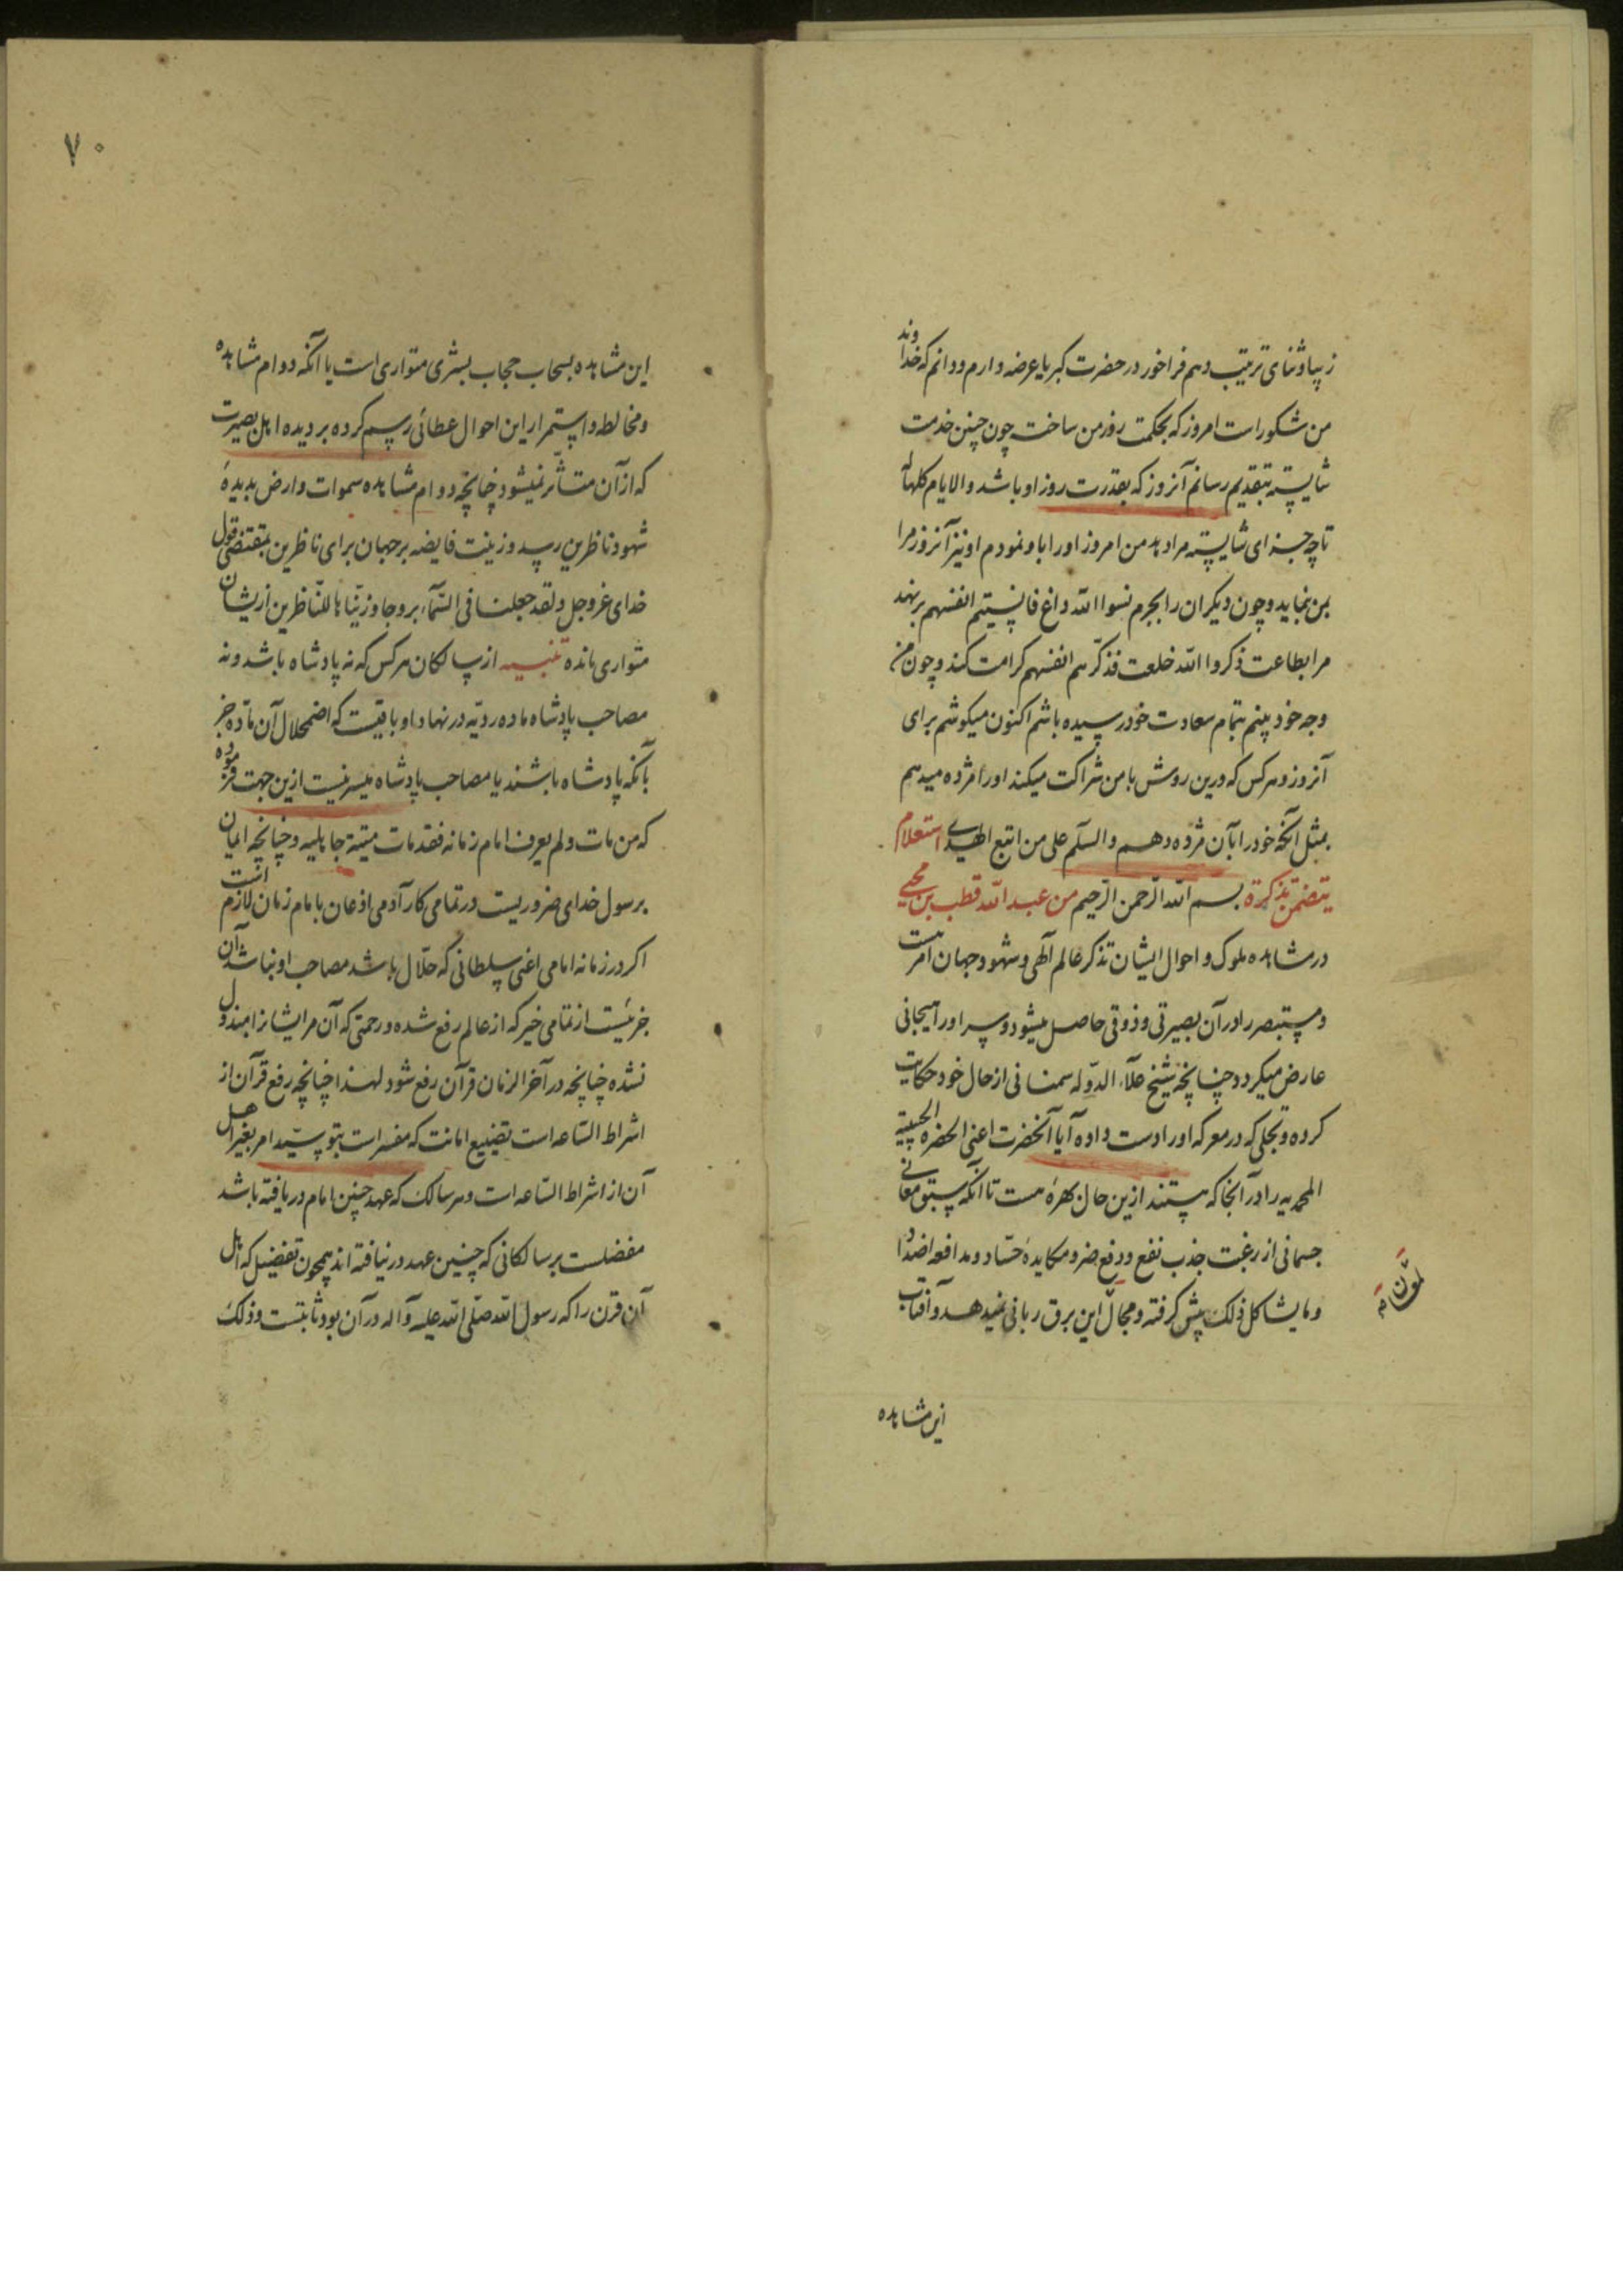 زیبا و ثنای ترتیب دهم فراخور در حضرت کبریا عرضه دارم و دانم که خداوند
من شکور است امروز که بحکمت روز من ساخت چون چنین خدمت
شایسته بتقدیم رسانم آنروز که بقدرت روز او باشد والایام کلها له
تا چه جزای شایسته مرا دهد من امروز او را باو نمودم او نیز آنروز مرا
بمن نماید و چون دیگران را بجرم نسوا الله داغ فانسیهم انفسهم بر نهد
مرا بطاعت ذکروا الله خلعت فذکرهم انفسهم کرامت کند و چون من
وجه خود بینم بتمام سعادت خود رسیده باشم اکنون میکوشم برای
آنروز و هرکس که درین روش با من شراکت میکند او را مژده میدهم
بمثل آنچه خود را بآن مژده دهم والسلم علی من اتبع الهدی استعلام
یتضمن تذکرة بسم الله الرحمن الرحیم من عبد الله قطب بن محیی
در مشاهده ملوک و احوال ایشان تذکر عالم آلهی و شهود جهان امر هست
و مستبصر را در آن بصیرتی و ذوقی حاصل میشود و سر او را هیجانی
عارض میکردد چنانچه شیخ علاء الدوله سمنانی از حال خود حکایت
کرده و تجلی که در معرکه او را دست داده آیا آنحضرت اعنی الحضره الحبیبیة
المحمدیه را در آنجا که هستند ازین حال بهرهٔ هست تا آنکه سبق معانی
جسمانی از رغبت جذب نفع و دفع ضر و مکایدهٔ حساد و مدافعه اضداد
و ما یشاکل ذلک پیش کرفته و مجال این برق ربانی نمیدهد و آفتاب
این مشاهده
۷۰
این مشاهده بسحاب حجاب بشری متواری است یا آنکه دوام مشاهده
و مخالطه و استمرار این احوال عطائی رسم کرده بر دیده اهل بصیرت
که از آن متأثر نمیشود چنانچه دوام مشاهده سموات و ارض بدیدهٔ
شهود ناظرین رسید و زینت فایضه بر جهان برای ناظرین بمقتضی قول
خدای عز و جل ولقد جعلنا فی السماء بروجا و زیناها للناظرین از ایشان
متواری مانده تنبیه از سالکان هرکس که نه پادشاه باشد و نه
مصاحب پادشاه ماده ردیه در نهاد او باقیست که اضمحلال آن ماده جز
بآنکه پادشاه باشند یا مصاحب پادشاه میسر نیست ازین جهت فرموده
که من مات و لم یعرف امام زمانه فقد مات میتة جاهلیه و چنانچه ایمان
برسول خدای ضروریست در تمامی کار آدمی اذعان بامام زمان لازم است
اکر در زمانه امامی اعنی سلطانی که حلال باشد مصاحب او نباشد آن
جزئیست از تمامی خیر که از عالم رفع شده و رحمتی که آن مر ایشانرا مبذول
نشده چنانچه در آخر الزمان قرآن رفع شود لهذا چنانچه رفع قرآن از
اشراط الساعه است تضییع امانت که مفسر است بتوسید امر بغیر اهل
آن از اشراط الساعه است و هر سالک که عهد چنین امام دریافته باشد
مفضلست بر سالکانی که چنین عهد در نیافته اند همچون تفضیل که اهل
آن قرن را که رسول الله صلی الله علیه و آله در آن بود ثابتست و ذلک